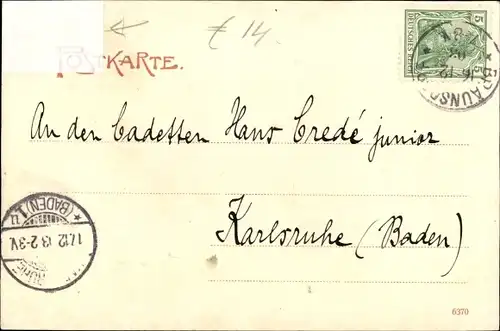 £ 14
POSTKARTE.
5
DEUTSCHES REICH
An den Cadetten Hans Credé junior
Karlsruhe (Baden)
(BADEN) 1.
17.12.13 2-3V.
6370